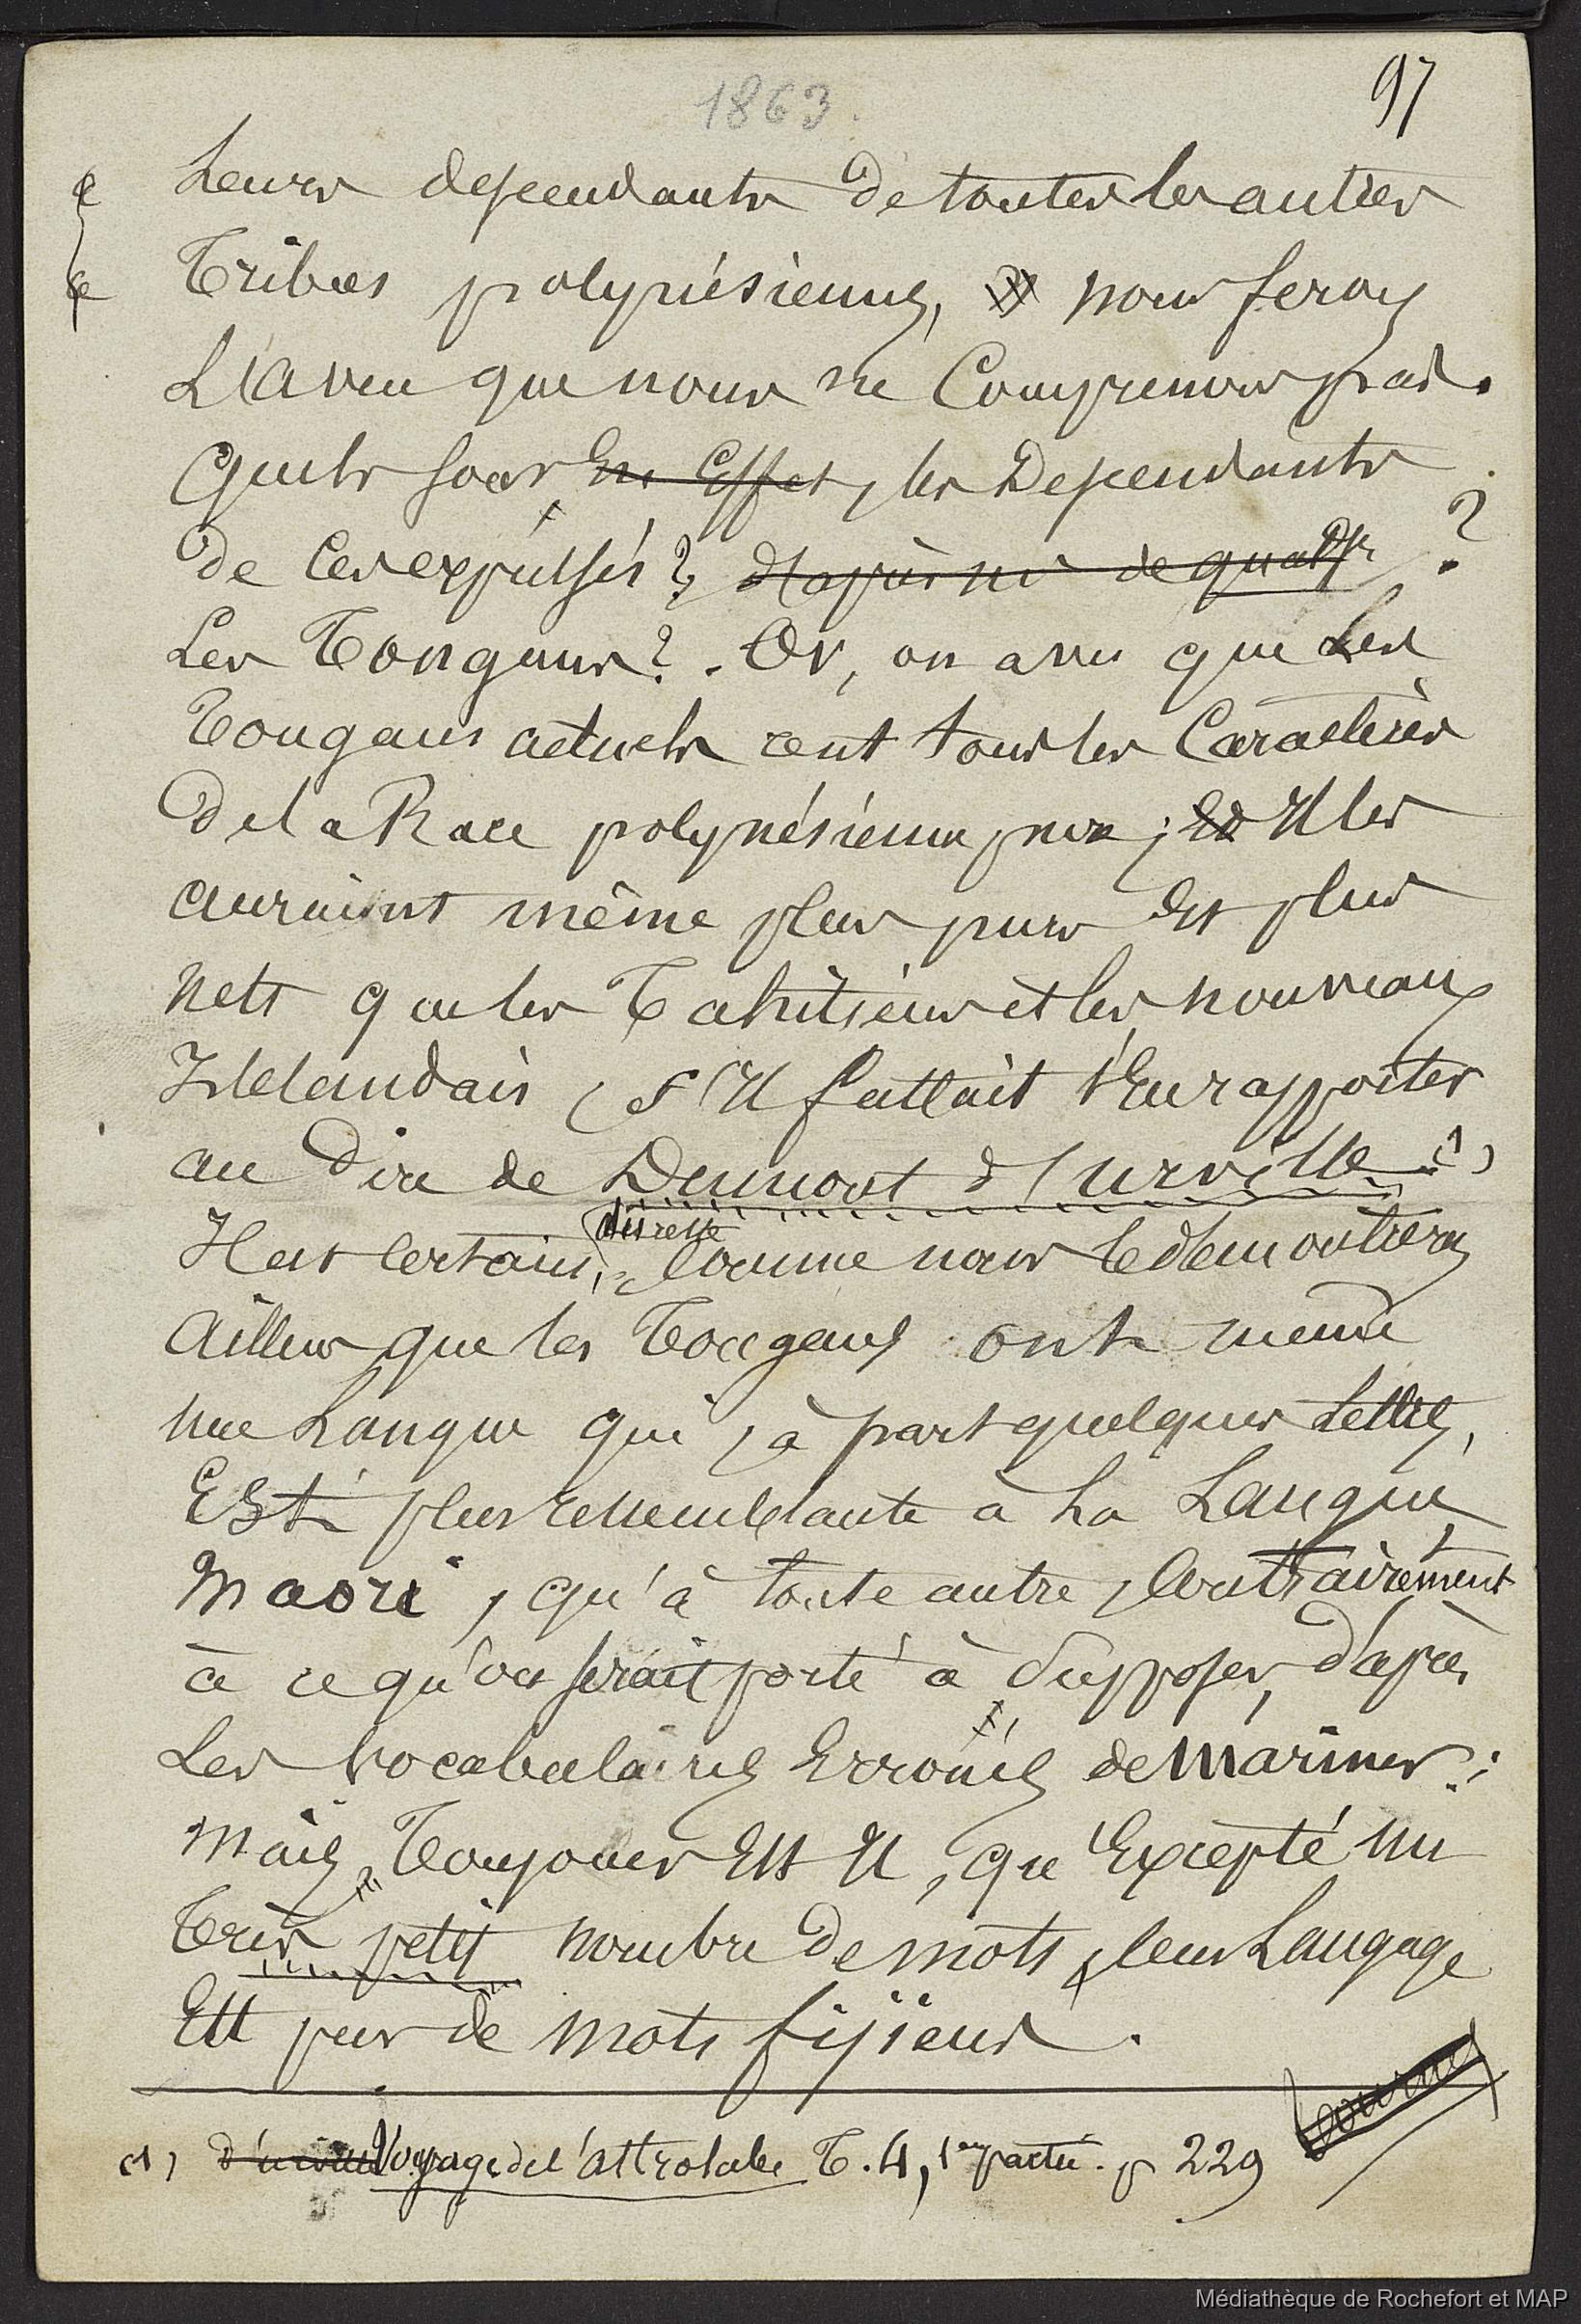 1863.
97
Leurs descendants de toutes les autres
Tribus polynésiennes, nous ferons
L'aveu que nous ne Comprenons pas.
Quels sont, En Effet, les Descendants
de Ces expulsés?
Les Tongans? . Or, on a vu que Les
Tongans actuels ont tous les Caractères
De la Race polynésienne pure; Ils les
auraient même plus purs et plus
nets que les Tahitiens et les nouveaux
Zélelandais, S'Il fallait s'En rapporter
au Dire de Dumont d'Urville (1)
Il est certain, Comme nous le démontrerons
Ailleurs que les Tongans ont même
une Langue qui, à part quelques Lettres,
Est plus ressemblante à La Langue
Maori, qu'à toute autre, Contrairement
à ce qu'on serait porté à supposer, d'après
Les Vocabulaires Erronés de Mariner;
Mais Toujours Est Il, que Excepté un
Très petit nombre De mots, leur Langage
Est pur de mots fijiens.
(1) Voyage de l'astrolabe T. 4, 1ere partie. p 229
Médiathèque de Rochefort et MAP